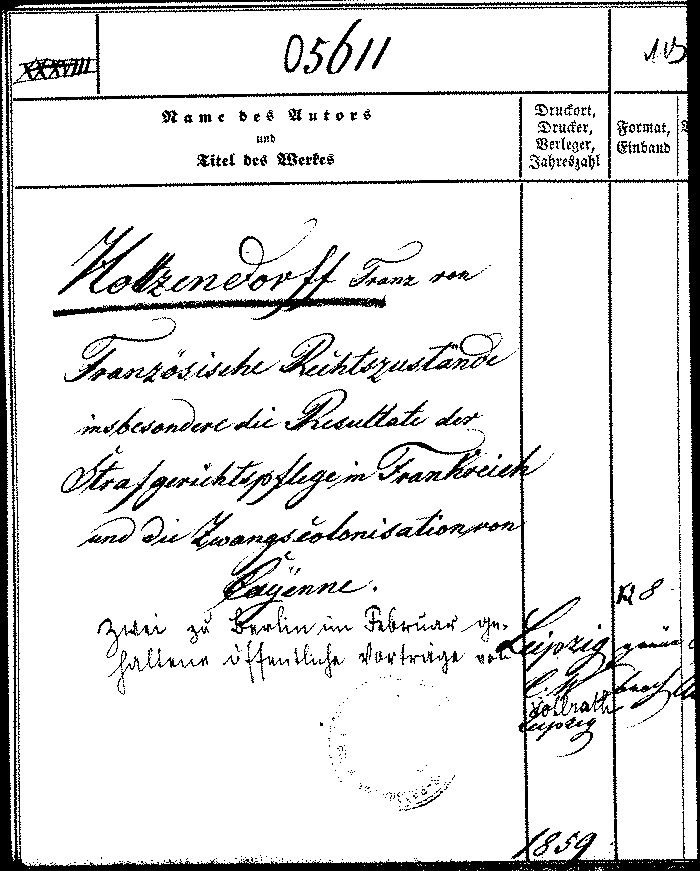 XXXVIII
05611
Name des Autors
und
Titel des Werkes
Druckort,
Drucker,
Verleger,
Jahreszahl
Format,
Einband
Holtzendorff Franz von
Französische Rechtszustände
insbesondere die Resultate der
Strafgerichtspflege in Frankreich
und die Zwangscolonisation von
Cayenne.
Zwei zu Berlin im Februar ge-
haltene öffentliche Vorträge von
Kl 8
Leipzig
Vollrath
Leipzig
1859